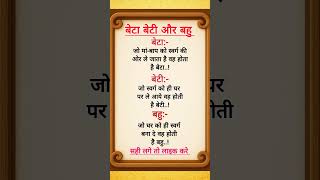 बेटा बेटी और बहु
बेटा:-
जो मां-बाप को स्वर्ग की
ओर ले जाता है वह होता
है बेटा..!
बेटी:-
जो स्वर्ग को ही घर
पर ले आये वह होती
है बेटी..!
बहु:-
जो घर को ही स्वर्ग
बना दे वह होती
है बहु..!
सही लगे तो लाइक करे